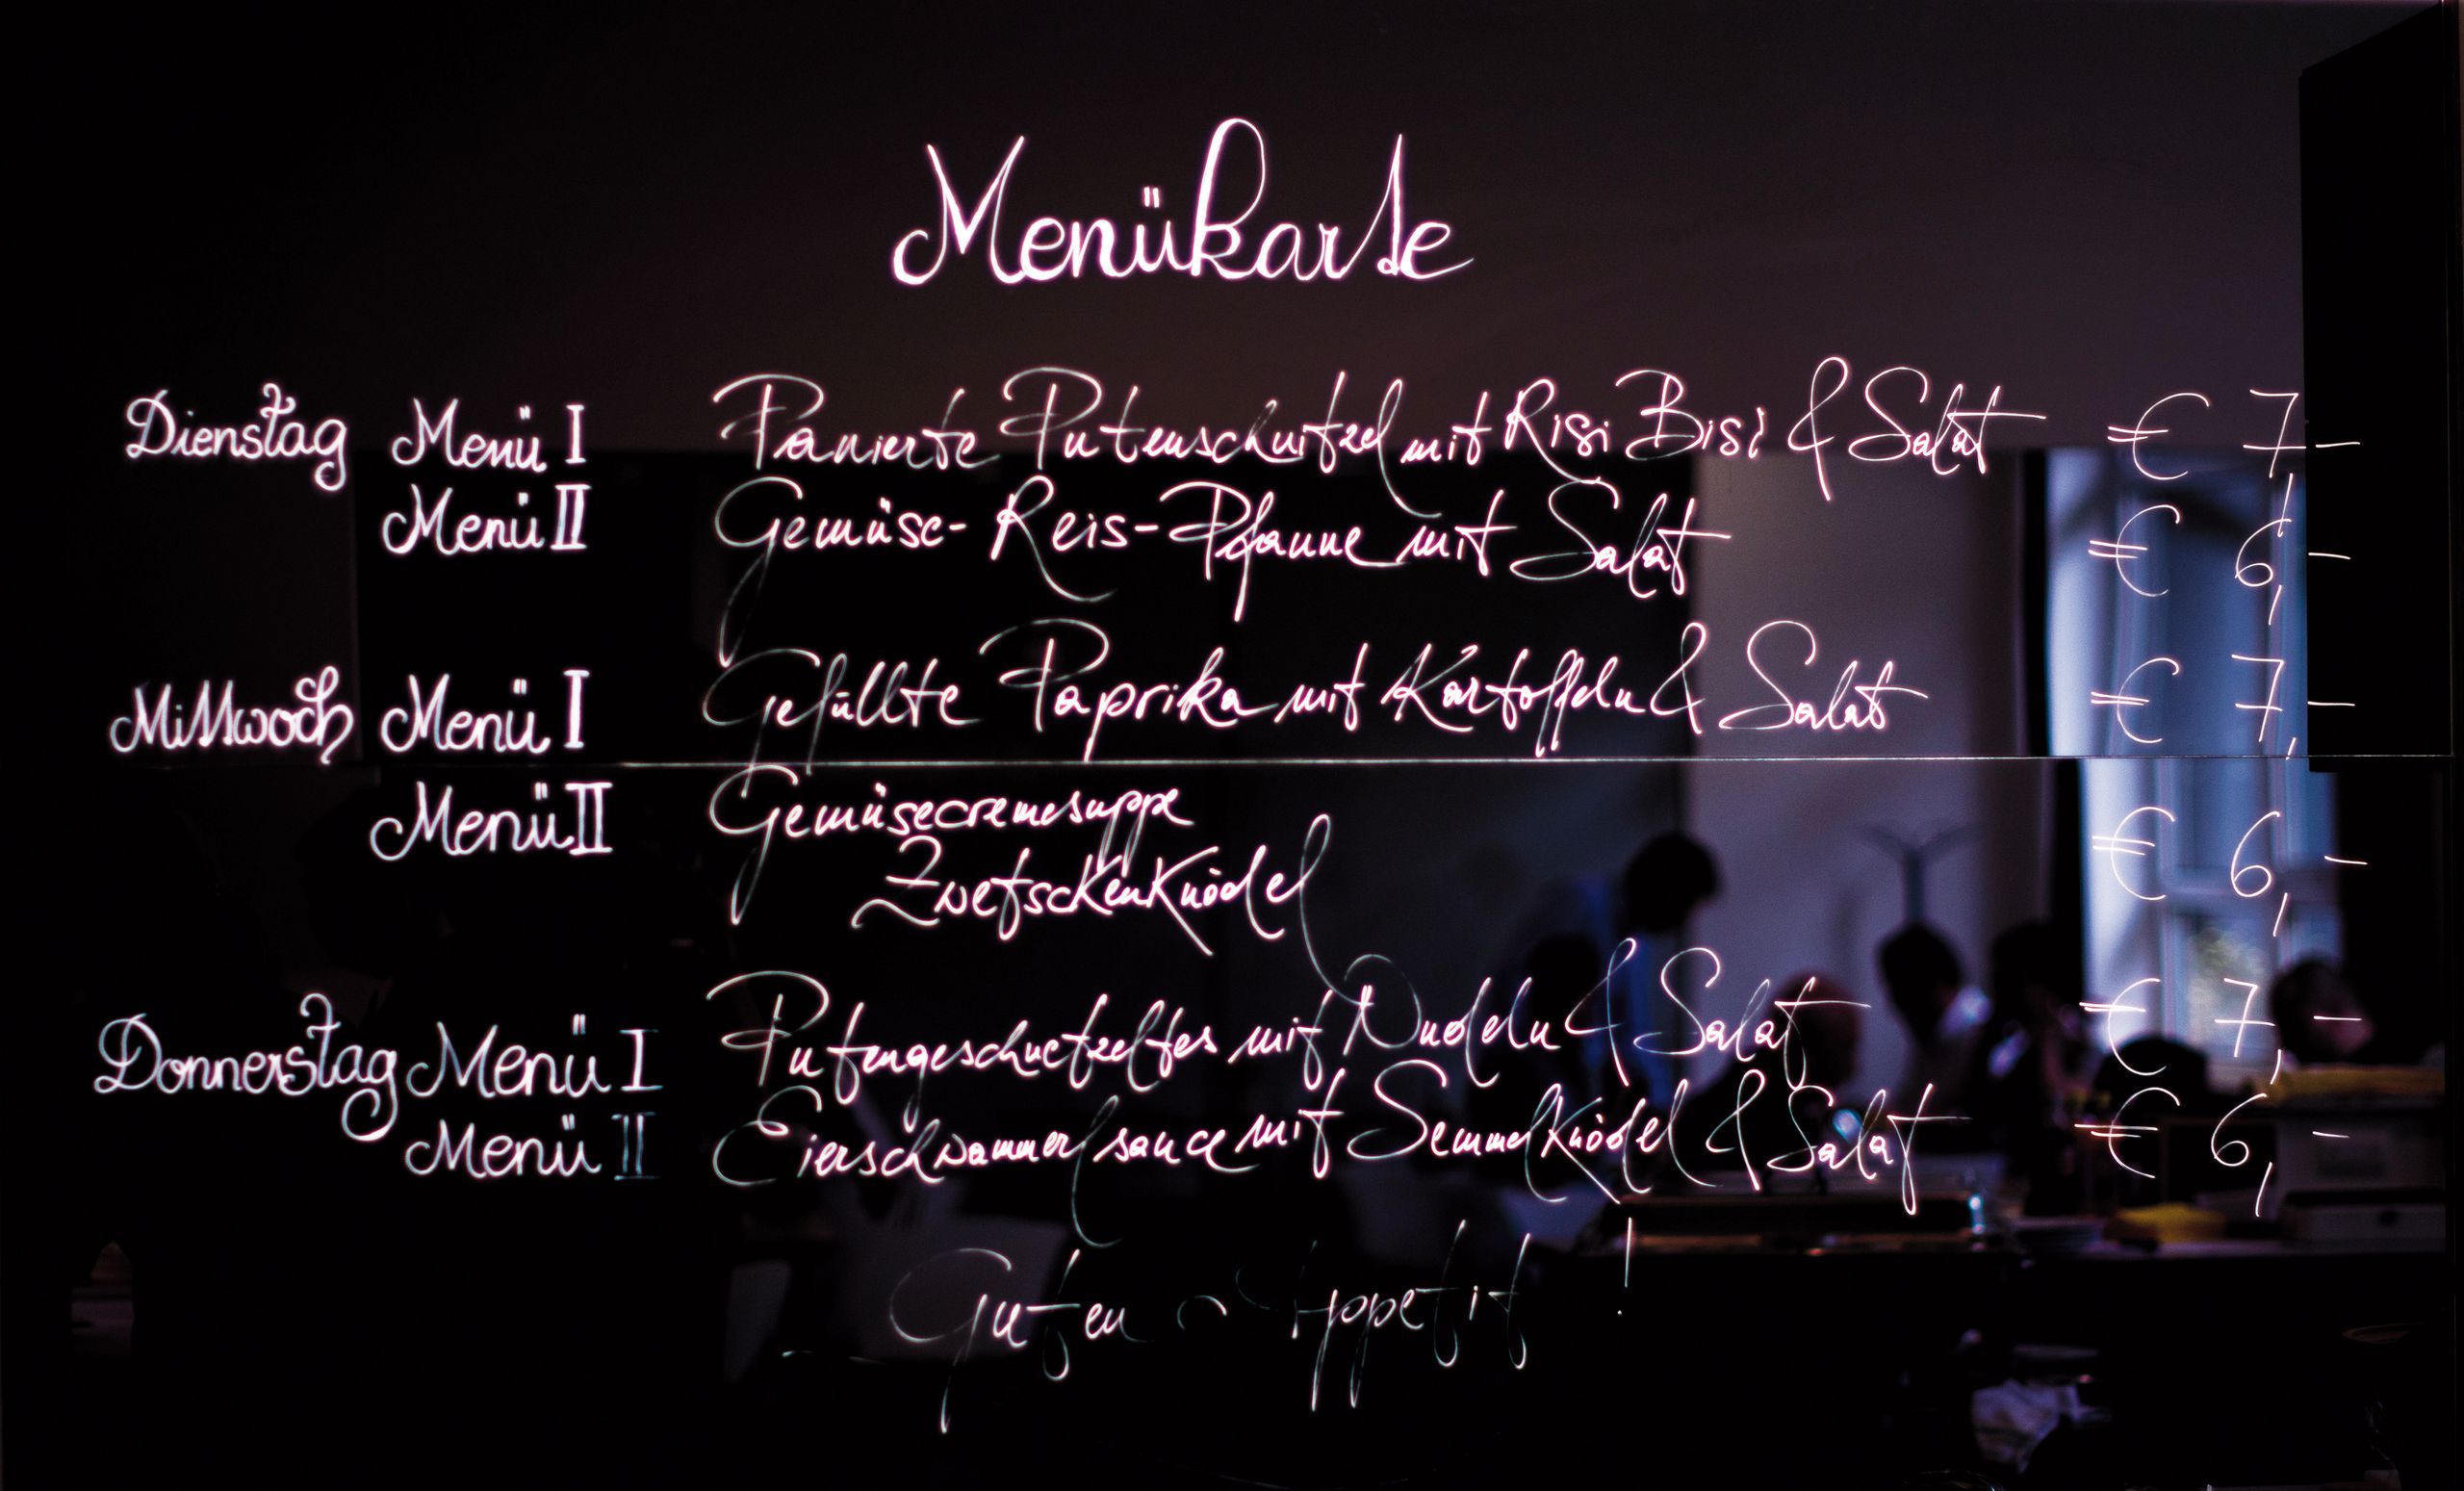 Menükarte
Dienstag Menü I Panierte Putenschnitzel mit Risi Bisi & Salat € 7,-
Menü II Gemüse-Reis-Pfanne mit Salat € 6,-
Mittwoch Menü I Gefüllte Paprika mit Kartoffeln & Salat € 7,-
Menü II Gemüsecremesuppe € 6,-
Zwetschkenknödel
Donnerstag Menü I Putengeschnetzeltes mit Nudeln & Salat € 7,-
Menü II Eierschwammerlsauce mit Semmelknödel & Salat € 6,-
Guten Appetit!